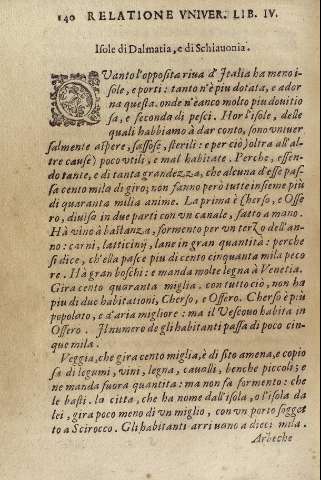 140 RELATIONE VNIVER. LIB. IV.
Isole di Dalmatia, e di Schiauonia.
QVanto l'opposita riua d'Italia ha meno i-
sole, e porti: tanto n'è piu dotata, e ador
na questa. onde n'è anco molto piu douitio
sa, e seconda di pesci. Hor l'isole, delle
quali habbiamo à dar conto, sono vniuer
salmente aspere, sassose, sterili: e per ciò (oltra all'al
tre cause) poco vtili, e mal habitate. Perche, essen-
do tante, e di tanta grandezza, che alcuna d'esse pas-
sa cento mila di giro; non fanno però tutte insieme piu
di quaranta milia anime. La prima è Cherso, e Of-
sero, diuisa in due parti con vn canale, fatto a mano.
Hà vino à bastanza, formento per vn terzo dell'an-
no: carni, latticinij, lane in gran quantità: perche
si dice, ch'ella pasce piu di cento cinquanta mila peco
re. Hà gran boschi: e manda molte legna à Venetia.
Gira cento quaranta miglia. con tutto ciò, non ha
piu di due habitationi, Cherso, e Ossero. Cherso è più
popolato, e d'aria migliore: ma il Vescouo habita in
Ossero. Il numero de gli habitanti passa di poco cin-
que mila.
Veggia, che gira cento miglia, è di sito amena, e copio
sa di legumi, vini, legna, caualli, benche piccoli; e
ne manda fuora quantità: ma non fa formento: che
le basti. la città, che ha nome dall'isola, o l'isola da
lei, gira poco meno di vn miglio, con vn porto sogget
to a Scirocco. Gli habitanti arriuono a dieci mila.
Arbeche